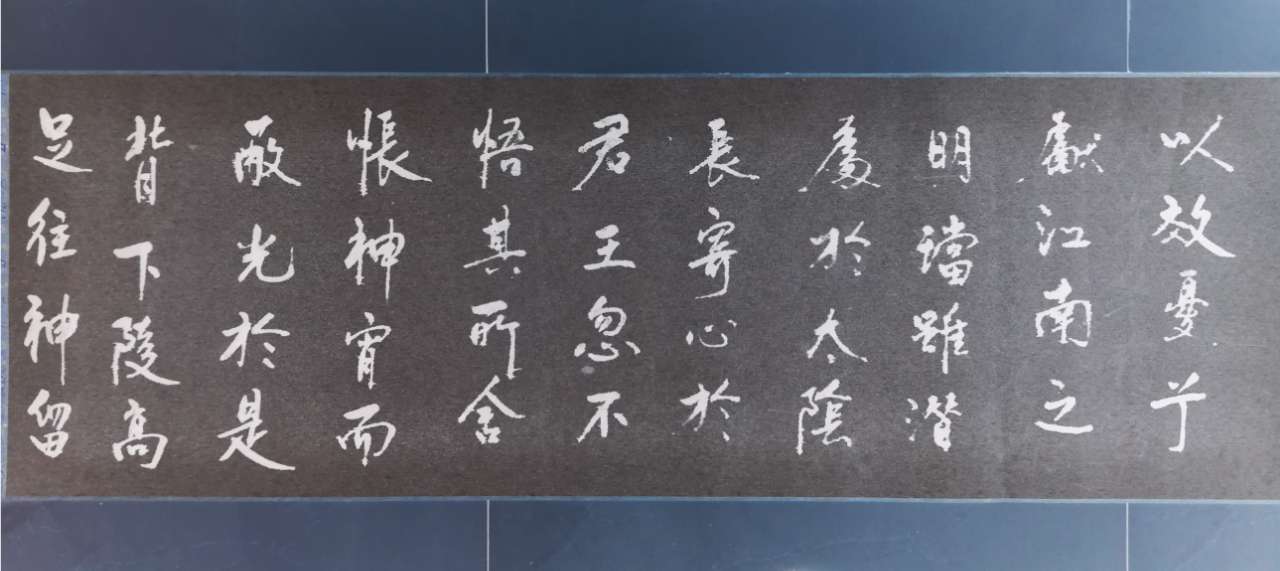 以效愛兮
獻江南之
明璫雖潛
處於太陰
長寄心於
君王忽不
悟其所舍
悵神宵而
蔽光於是
背下陵高
足往神留